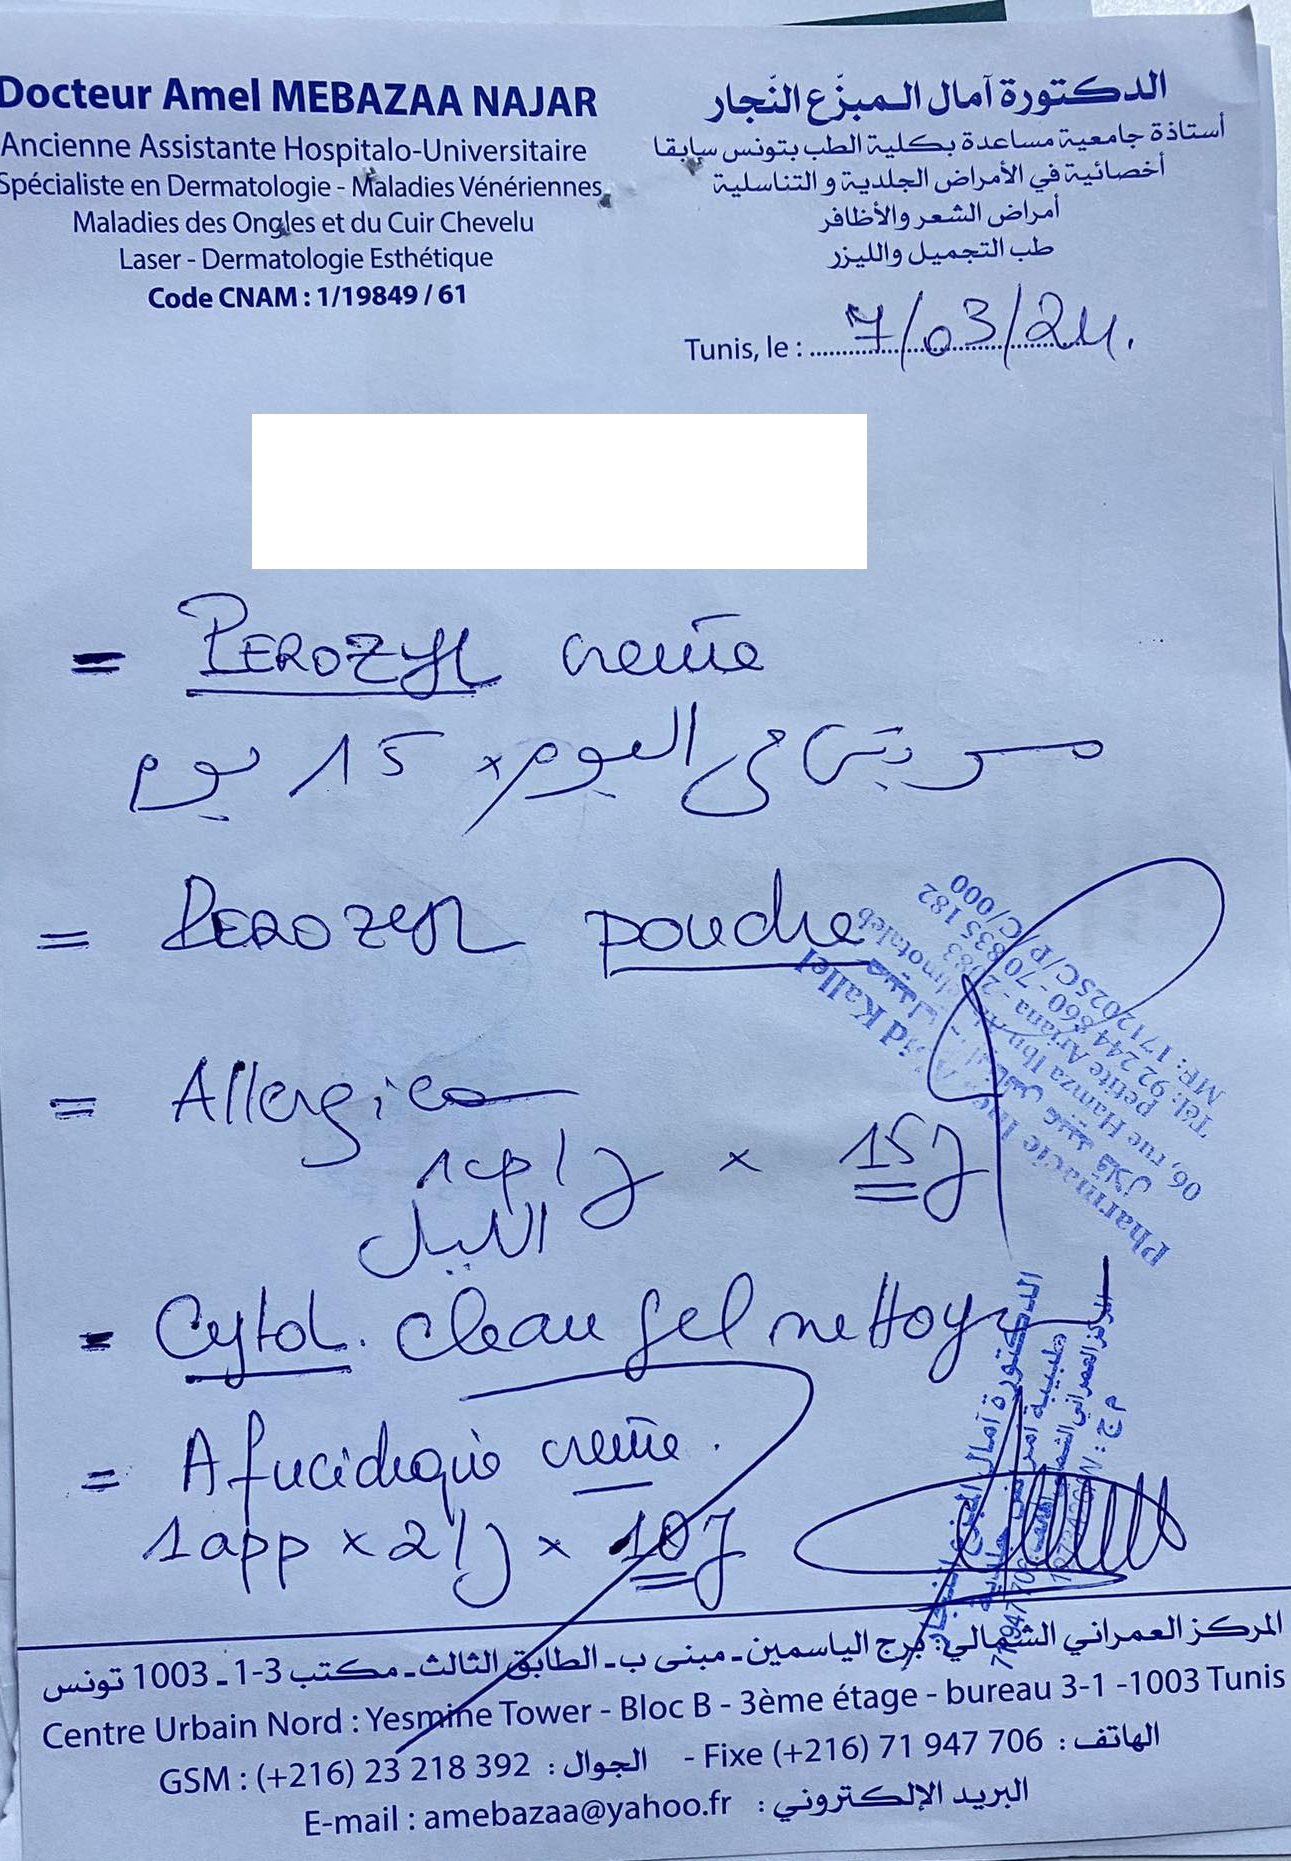 Docteur Amel MEBAZAA NAJAR
Ancienne Assistante Hospitalo-Universitaire
Spécialiste en Dermatologie - Maladies Vénériennes
Maladies des Ongles et du Cuir Chevelu
Laser - Dermatologie Esthétique
Code CNAM : 1/19849 / 61
الدكتورة آمال المبزّع النّجار
أستاذة جامعية مساعدة بكلية الطب بتونس سابقا
أخصائية في الأمراض الجلدية و التناسلية
أمراض الشعر والأظافر
طب التجميل والليزر
Tunis, le : 7/03/24.
= PEROZYL creme
مرتين في اليوم x 15 يوم
= PEROZYL poudre
= Allergica
1cp/j x 15j
الليل
= Cytol. clean gel nettoy
= Afucidique creme.
1app x 2/j x 10j
Pharmacie Kallel
06, rue Hamza Ibn
petite Ariana - 2083
Tél: 92 244 860 - 70 835 182
MF: 1712025C/P/C/000
الدكتورة آمال المبزع النجار
المركز العمراني الشمالي: برج الياسمين ـ مبنى ب ـ الطابق الثالث ـ مكتب 3-1 ـ 1003 تونس
Centre Urbain Nord : Yesmine Tower - Bloc B - 3ème étage - bureau 3-1 -1003 Tunis
GSM : (+216) 23 218 392 : الجوال - Fixe (+216) 71 947 706 : الهاتف
E-mail : amebazaa@yahoo.fr : البريد الإلكتروني